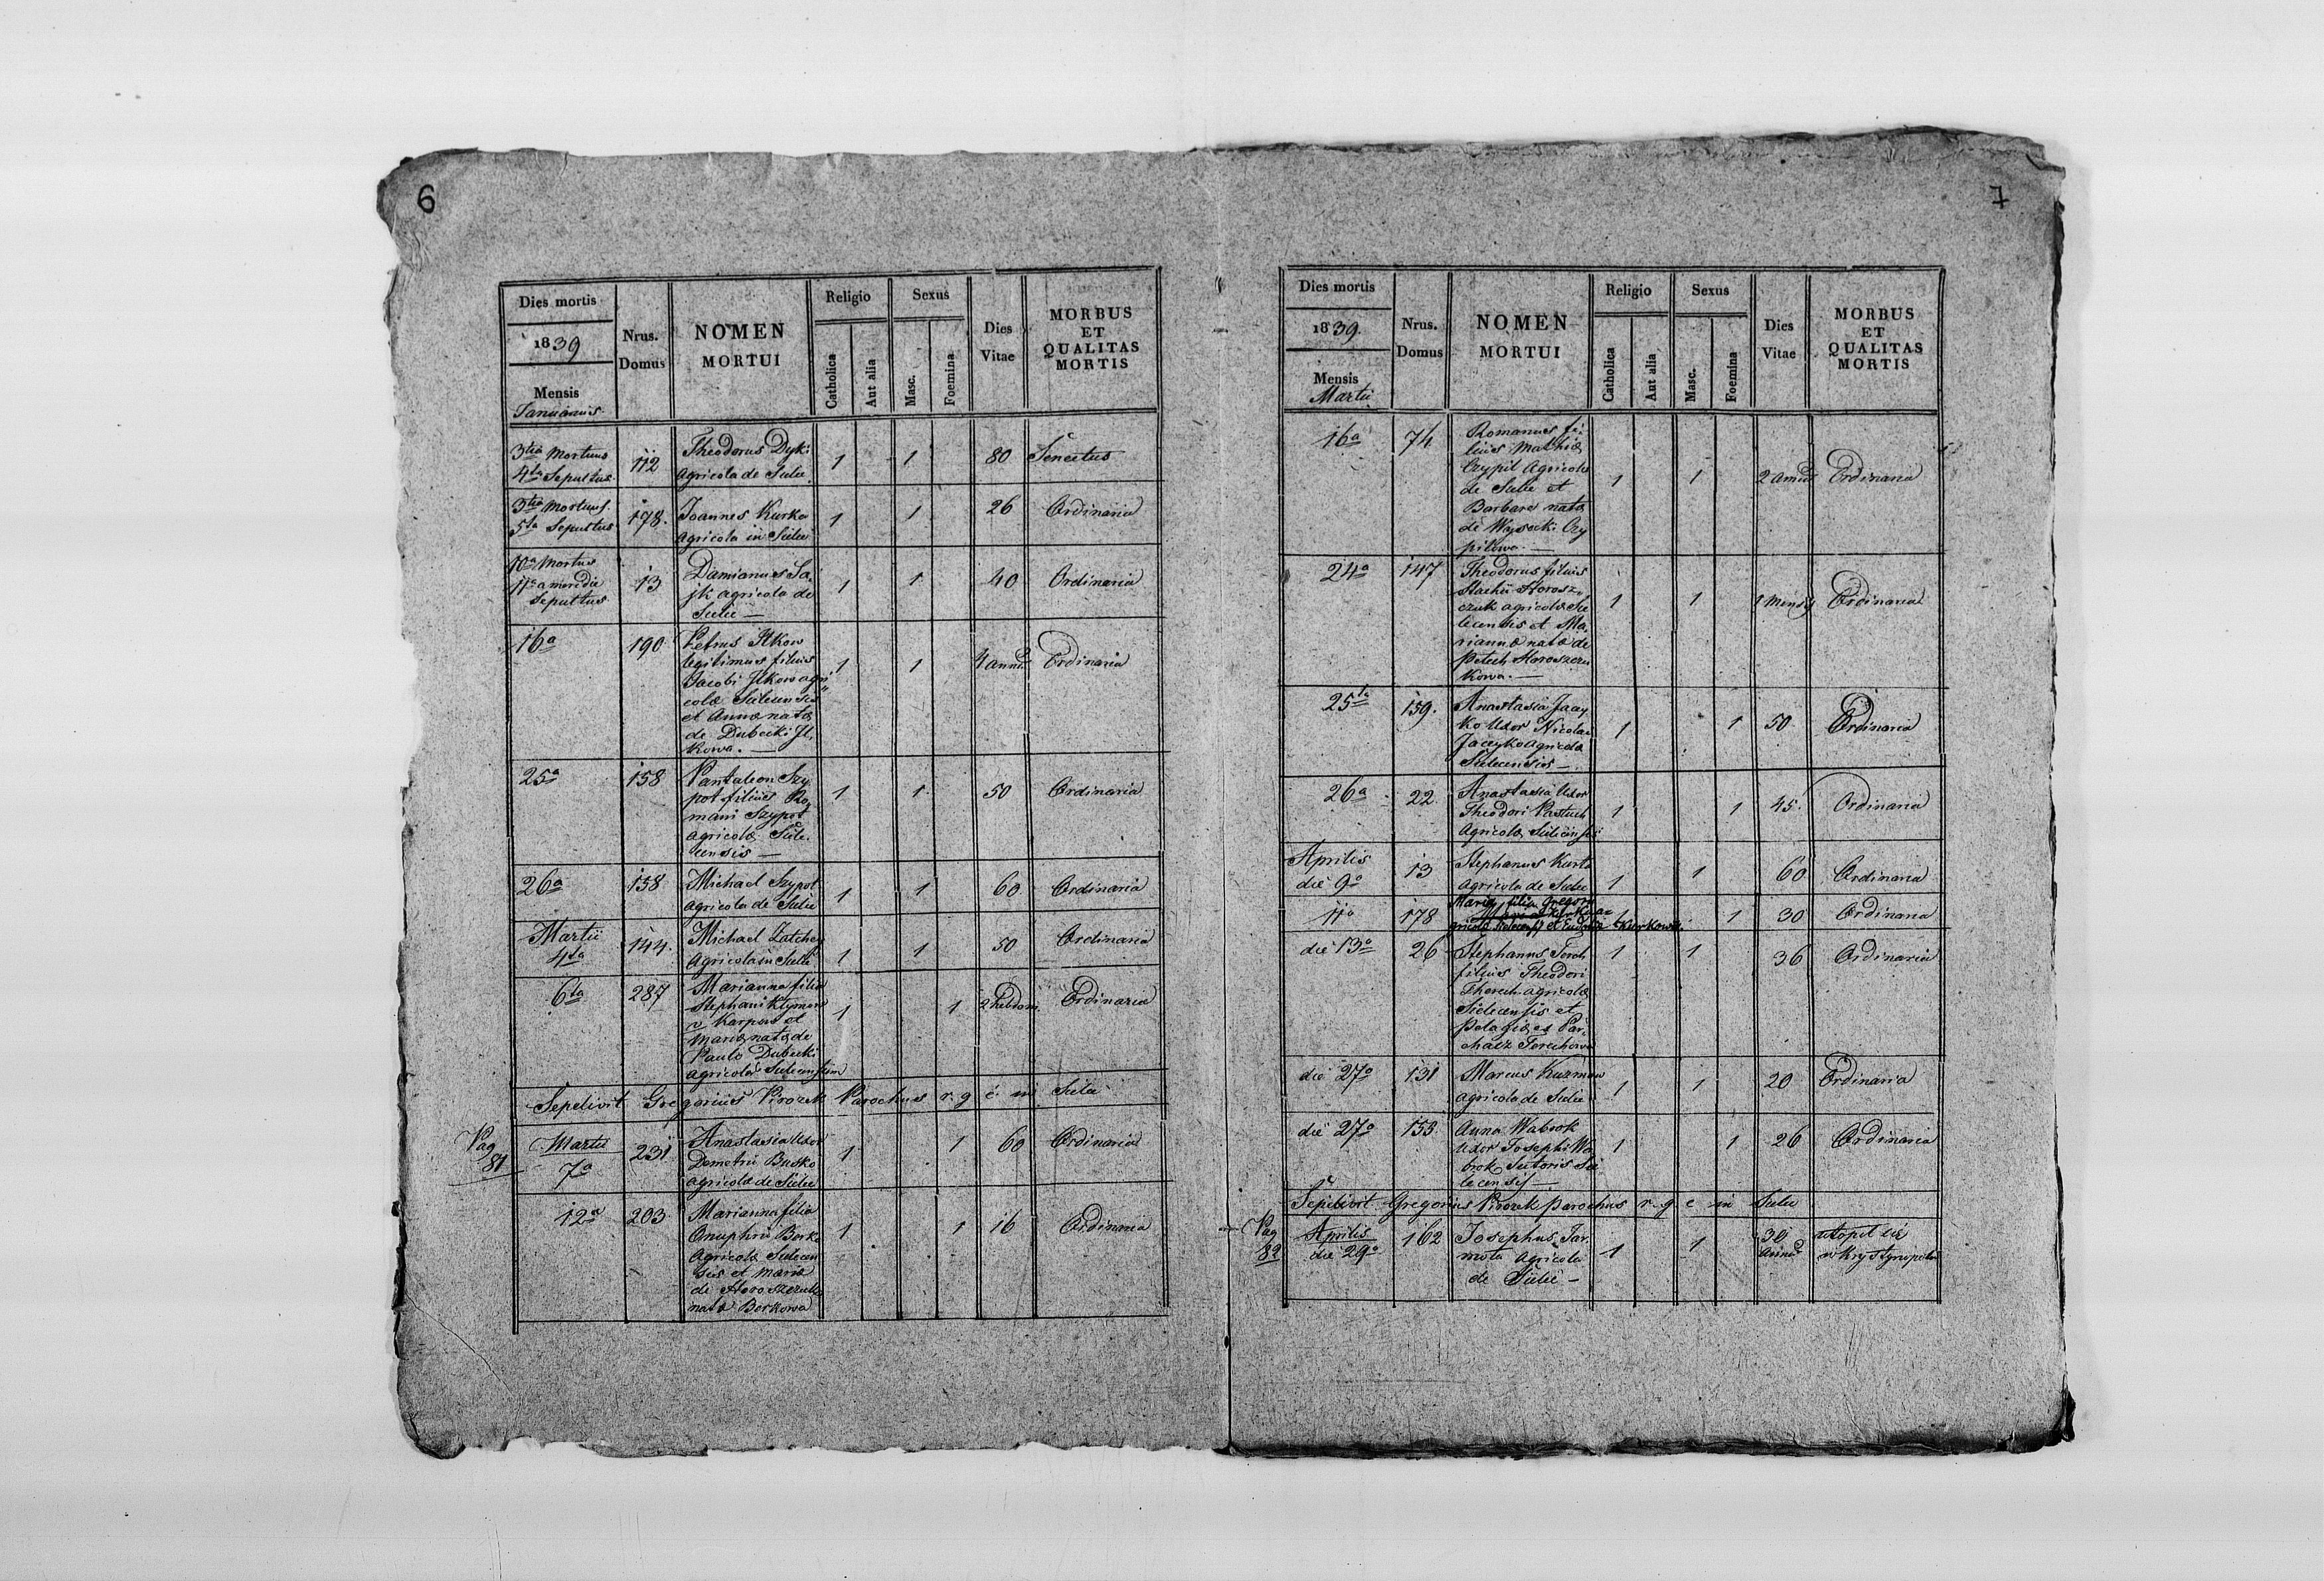 6
Dies mortis
1839
Mensis
Januarius
Nrus.
Domus
NOMEN
MORTUI
Religio
Catholica
Aut alia
Sexus
Masc.
Foemina
Dies
Vitae
MORBUS
ET
QUALITAS
MORTIS
3tia Mortuus
4ta Sepultus
112
Theodorus Dyki
Agricola de Sielec
1 1 80 Senectus
3tia Mortuus
5ta Sepultus
178.
Joannes Kurka
agricola in Sielec
1 1 26 Ordinaria
10a Mortus
11a a meridie
Sepultus
13
Damianus Sa
jk agricola de
Sielec —
1 1 40 Ordinaria
16a 190
Petrus Ilkow
legitimus filius
Jacobi Ilkow agri
colae Sielecensis
et Annae natae
de Dubecki Il,
kowa. —
1 1 4 anni Ordinaria
25a 158
Pantaleon Szy
pot filius Ro
mani Szypot
agricolae Siele
censis —
1 1 50 Ordinaria
26a 158
Michael Szypot
agricola de Sielec
1 1 60 Ordinaria
Martii
4ta
144.
Michael
Agricola in Sielec
1 1 50 Ordinaria
6ta 287
Marianna filia
Stephani
Karpow et
Mariae natae de
Paulo Dubecki
agricolae Sielecensium
1 1 2 hebdom. Ordinaria
Sepelivit Gregorius Pirozek Parochus r. g. c. in Sielec
Pag
81
Martii
7a
231
Anastasia Uxor
Demetrii Busko
agricolae de Sielec
1 1 60 Ordinaria
12a 203
Marianna filia
Onuphrii Berk
Agricolae Sielecen
sis et Mariae
de Horoszczuk
nata Berkowa
1 1 16 Ordinaria
7
Dies mortis
1839.
Mensis
Martii
Nrus.
Domus
NOMEN
MORTUI
Religio
Catholica
Aut alia
Sexus
Masc.
Foemina
Dies
Vitae
MORBUS
ET
QUALITAS
MORTIS
16a 74
Romanus fi-
lius Mathiae
Czypil Agricolae
de Sielec et
Barbara natae
de Wysocki Czy
pilowa. —
1 1 2 Ordinaria
24a 147
Theodorus filius
Horosz-
czuk agricolae Sie
lecensis et Ma,
riannae natae de
Petech Horoszczu
kowa. —
1 1 Ordinaria
25ta 159.
Anastasia Jacy
ko Uxor Nicolai
Jaceyko agricolae
Sielecensis —
1 1 50 Ordinaria
26a 22
Anastasia Uxor
Theodori Pastuch
Agricolae Sielecensis
1 1 45. Ordinaria
Aprilis
die 9a
13
Stephanus Kurta
agricola de Sielec
1 1 60 Ordinaria
11a 178
Maria filia Gregorii
gricolae Sielecensis et Kurkowa
1 1 30 Ordinaria
die 13a 26
Stephanus Terech
filius Theodori
Therech agricolae
Sielecensis et
Pelagiae et Par,
chacz Terechowa
1 1 36 Ordinaria
die 27a 131
Marcus Kuzmow
agricola de Sielec
1 1 20 Ordinaria
die 27a 155
Anna Wabrok
Uxor Josephi Wa
brok Sutoris Sie
lecensis —
1 1 26 Ordinaria
Sepelivit Gregorius Pirozek parochus r. g. c. in Sielec
Pag
82
Aprilis
die 29a
162
Josephus Jar
mola Agricola
de Sielec —
1 1
30
utopil sie
w Krystynopolu